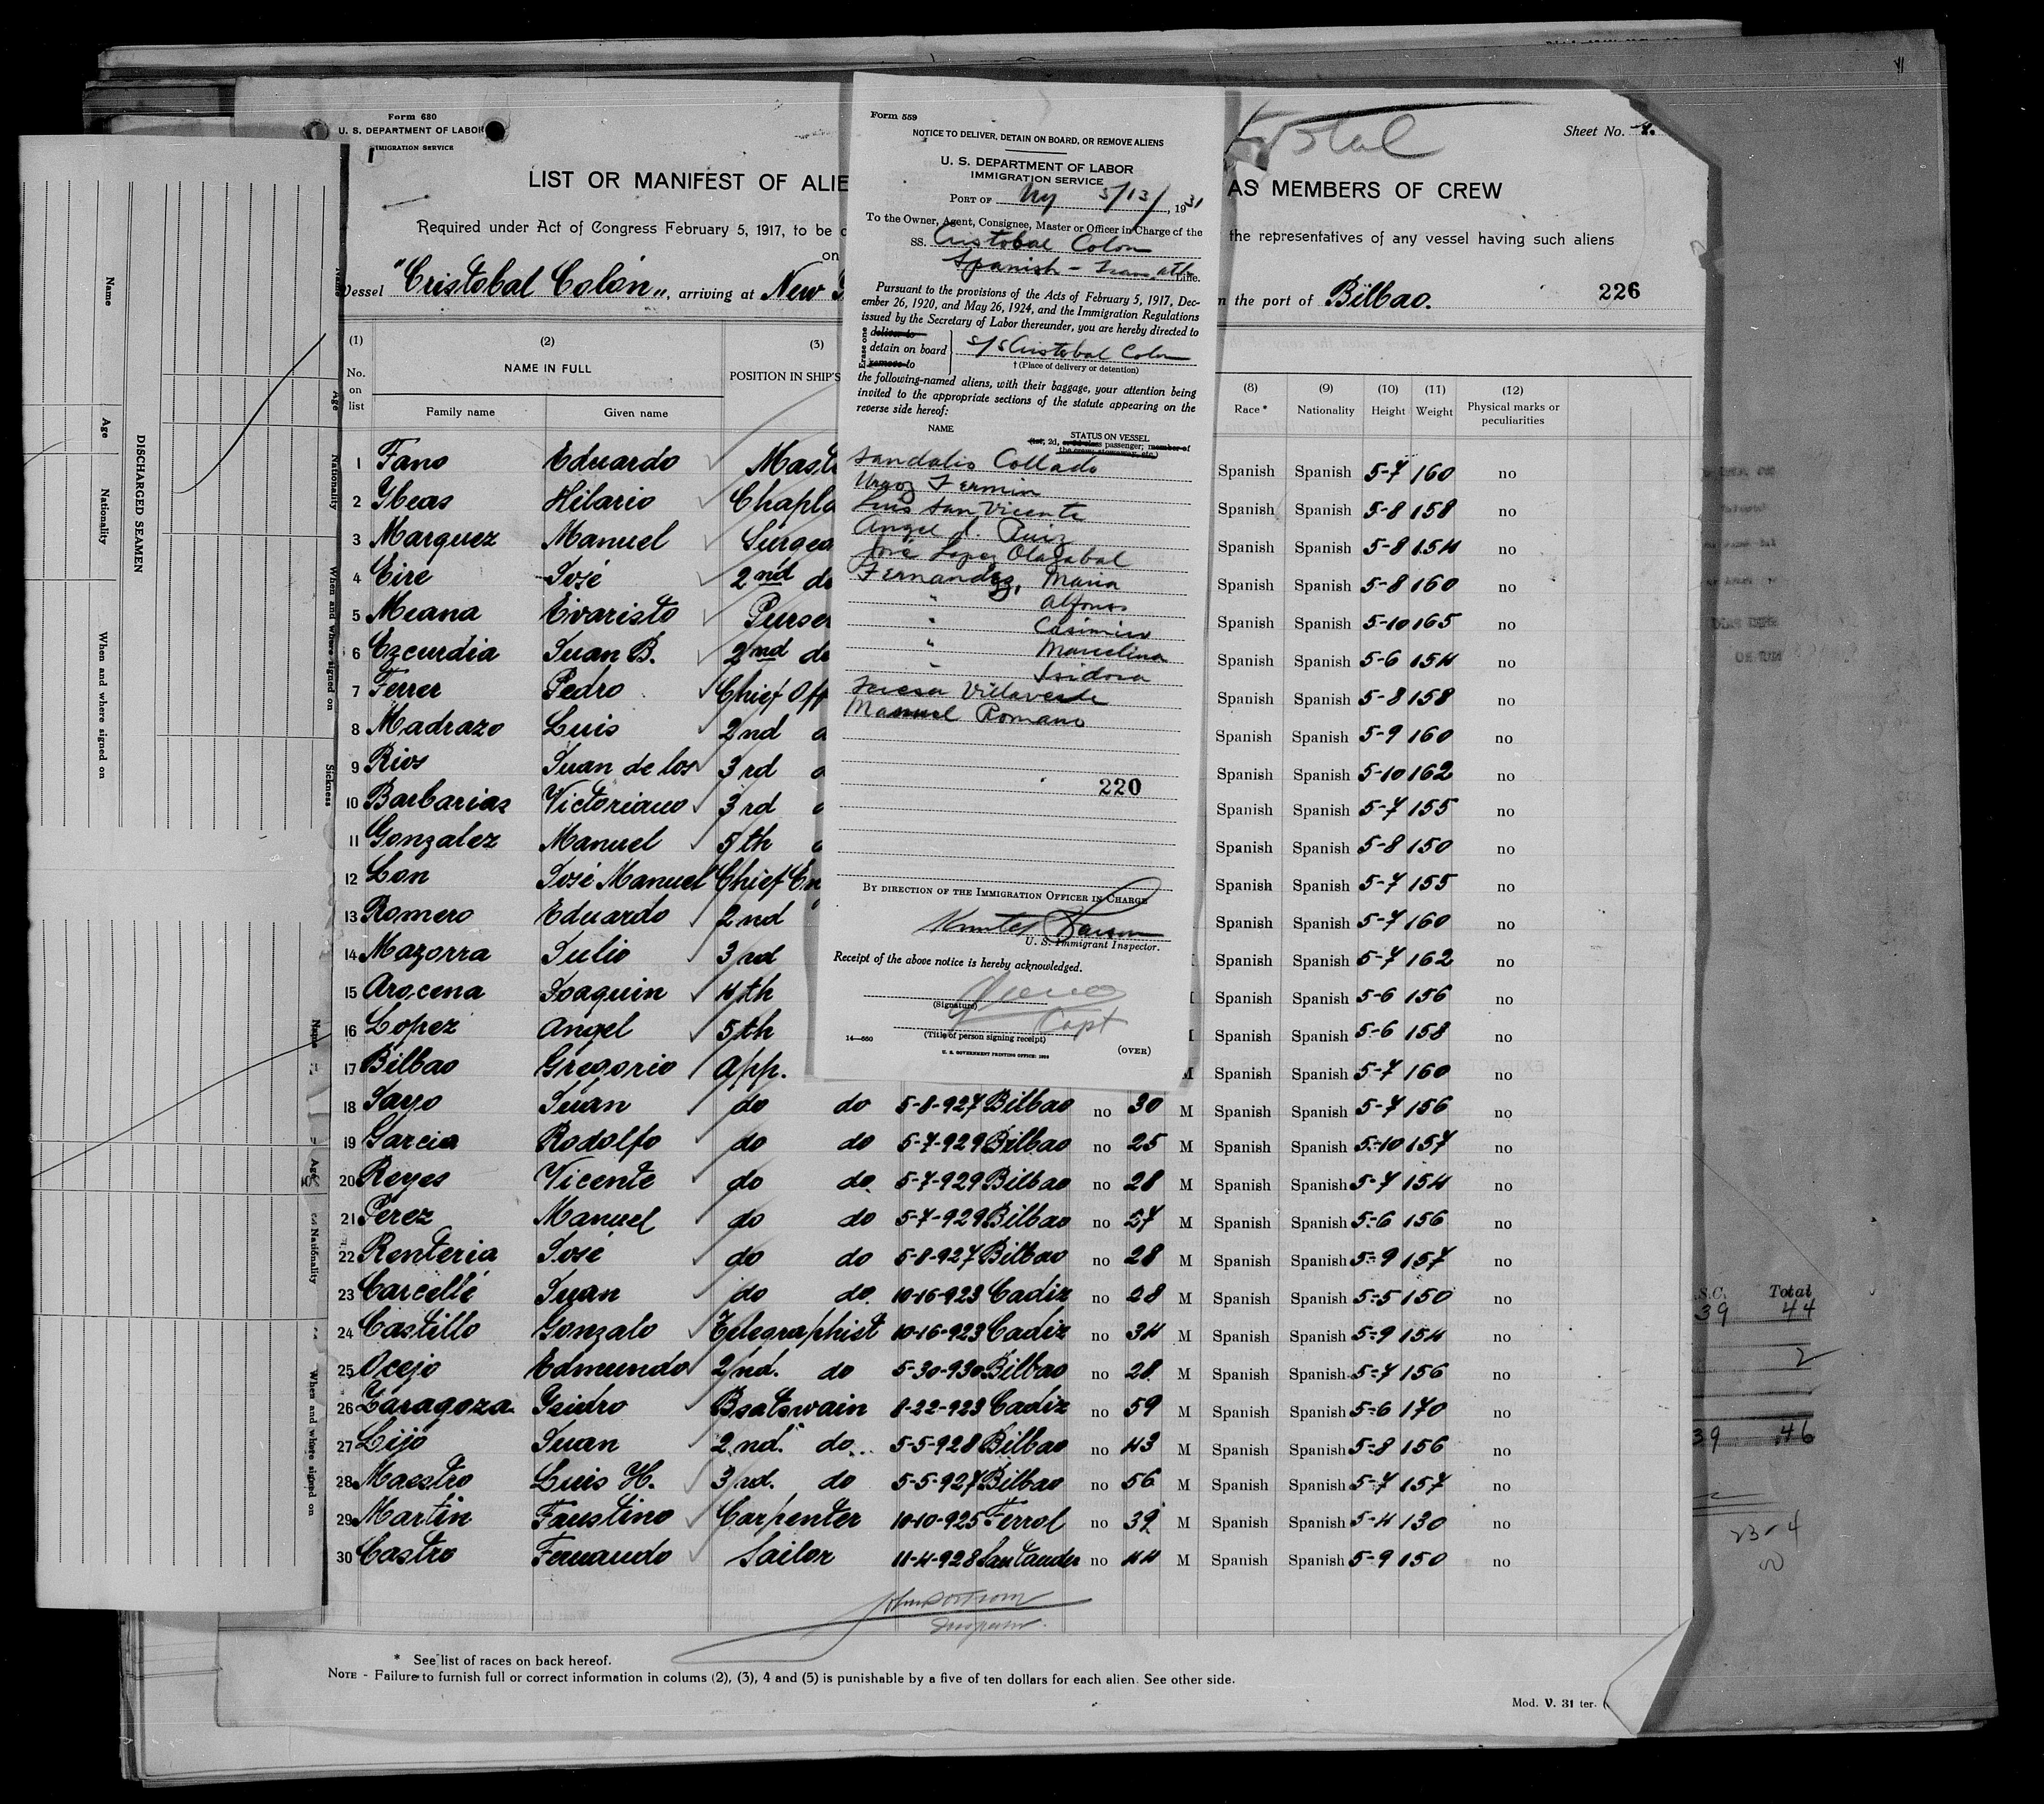 Form 680
U. S. DEPARTMENT OF LABOR
IMIGRATION SERVICE
Sheet No. 4.
LIST OR MANIFEST OF ALIE
AS MEMBERS OF CREW
Required under Act of Congress February 5, 1917, to be
the representatives of any vessel having such aliens
on
Vessel "Cristobal Colón", arriving at New
the port of Bilbao.
226
(1) (2) (3) (8) (9) (10) (11) (12)
No. on list NAME IN FULL POSITION IN SHIP'S Race* Nationality Height Weight Physical marks or peculiarities
Family name Given name
1 Fano Eduardo Mast Spanish Spanish 5-7 160 no
2 Ybeas Hilario Chapla Spanish Spanish 5-8 158 no
3 Marquez Manuel Surgeo Spanish Spanish 5-8 154 no
4 Eire José 2nd do Spanish Spanish 5-8 160 no
5 Meana Evaristo Purse Spanish Spanish 5-10 165 no
6 Ezcurdia Juan B. 2nd do Spanish Spanish 5-6 154 no
7 Ferrer Pedro Chief Off Spanish Spanish 5-8 158 no
8 Madrazo Luis 2nd Spanish Spanish 5-9 160 no
9 Rios Juan de los 3rd Spanish Spanish 5-10 162 no
10 Barbarias Victoriano 3rd Spanish Spanish 5-7 155 no
11 Gonzalez Manuel 5th Spanish Spanish 5-8 150 no
12 Lon José Manuel Chief En Spanish Spanish 5-7 155 no
13 Romero Eduardo 2nd Spanish Spanish 5-7 160 no
14 Mazorra Julio 3rd Spanish Spanish 5-7 162 no
15 Arocena Joaquin 4th Spanish Spanish 5-6 156 no
16 Lopez Angel 5th Spanish Spanish 5-6 158 no
17 Bilbao Gregorio App. M Spanish Spanish 5-7 160 no
18 Sayo Juan do do 5-8-927 Bilbao no 30 M Spanish Spanish 5-7 156 no
19 Garcia Rodolfo do do 5-7-929 Bilbao no 25 M Spanish Spanish 5-10 157 no
20 Reyes Vicente do do 5-7-929 Bilbao no 28 M Spanish Spanish 5-7 154 no
21 Perez Manuel do do 5-7-929 Bilbao no 27 M Spanish Spanish 5-6 156 no
22 Renteria José do do 5-8-927 Bilbao no 28 M Spanish Spanish 5-9 157 no
23 Carcellé Juan do do 10-16-923 Cadiz no 28 M Spanish Spanish 5-5 150 no
24 Castillo Gonzalo Telegraphist 10-16-923 Cadiz no 34 M Spanish Spanish 5-9 154 no
25 Ocejo Edmundo 2nd. do 5-30-930 Bilbao no 28 M Spanish Spanish 5-7 156 no
26 Zaragoza Ysidro Boatswain 8-22-923 Cadiz no 59 M Spanish Spanish 5-6 170 no
27 Lijo Juan 2nd. do 5-5-928 Bilbao no 43 M Spanish Spanish 5-8 156 no
28 Maestro Luis H. 3rd. do 5-5-927 Bilbao no 56 M Spanish Spanish 5-7 157 no
29 Martin Faustino Carpenter 10-10-925 Ferrol no 39 M Spanish Spanish 5-4 130 no
30 Castro Fernando Sailor 11-4-928 Santander no 44 M Spanish Spanish 5-9 150 no
* See list of races on back hereof.
NOTE - Failure to furnish full or correct information in colums (2), (3), 4 and (5) is punishable by a five of ten dollars for each alien. See other side.
Mod. V. 31 ter.
Form 559
NOTICE TO DELIVER, DETAIN ON BOARD, OR REMOVE ALIENS
U. S. DEPARTMENT OF LABOR
IMMIGRATION SERVICE
PORT OF NY 5/13/, 1931
To the Owner, Agent, Consignee, Master or Officer in Charge of the
SS. Cristobal Colon
Spanish - Trans. Atl. Line.
Pursuant to the provisions of the Acts of February 5, 1917, December
26, 1920, and May 26, 1924, and the Immigration Regulations
issued by the Secretary of Labor thereunder, you are hereby directed to
Erase one
deliver to
detain on board
remove to
S/S Cristobal Colon
† (Place of delivery or detention)
the following-named aliens, with their baggage, your attention being
invited to the appropriate sections of the statute appearing on the
reverse side hereof:
NAME
STATUS ON VESSEL
(1st, 2d, or 3d class passenger; member of
the crew, stowaway, etc.)
Sandalio Collado
Urgoz Fermin
Luis San Vicente
Angel d. Ruiz
José Lopez Olazabal
Fernandez, Maria
" Alfonso
" Casimiro
" Marcelina
" Isidora
Teresa Villaverde
Manuel Romano
220
BY DIRECTION OF THE IMMIGRATION OFFICER IN CHARGE
U. S. Immigrant Inspector.
Receipt of the above notice is hereby acknowledged.
(Signature)
Capt
(Title of person signing receipt)
14—560
U. S. GOVERNMENT PRINTING OFFICE: 1929
(OVER)
DISCHARGED SEAMEN
Name
Age
Nationality
When and where signed on
Name
Age
Nationality
When and where signed on
Sickness
Name
Age
Nationality
When and where signed on
S.C. Total
39 44
2
39 46